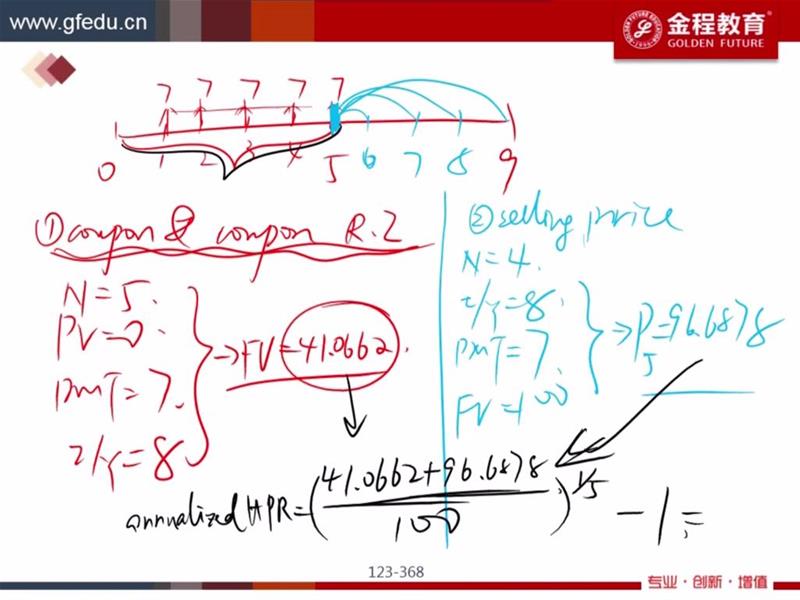 www.gfedu.cn
金程教育
GOLDEN FUTURE
7 7 7 7 7
0 1 2 3 4 5 6 7 8 9
①coupon & coupon R.I
②selling price
N=5.
PV=0.
PMT=7.
I/Y=8
→FV=41.0662.
N=4.
I/Y=8.
PMT=7.
FV=100
⇒P5=96.6878
annualized HPR=(41.0662+96.6878/100)^1/5 -1=
123-368
专业·创新·增值